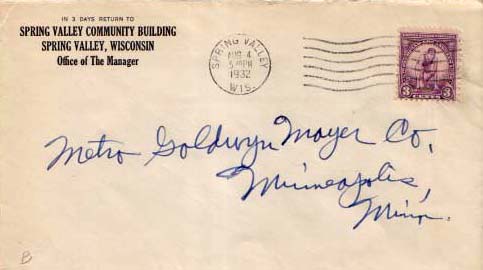 IN 3 DAYS RETURN TO
SPRING VALLEY COMMUNITY BUILDING
SPRING VALLEY, WISCONSIN
Office of The Manager
SPRING VALLEY
AUG 4
PM
1932
WIS.
3 CENTS 3
Metro Goldwyn Mayer Co,
Minneapolis,
Minn.
B